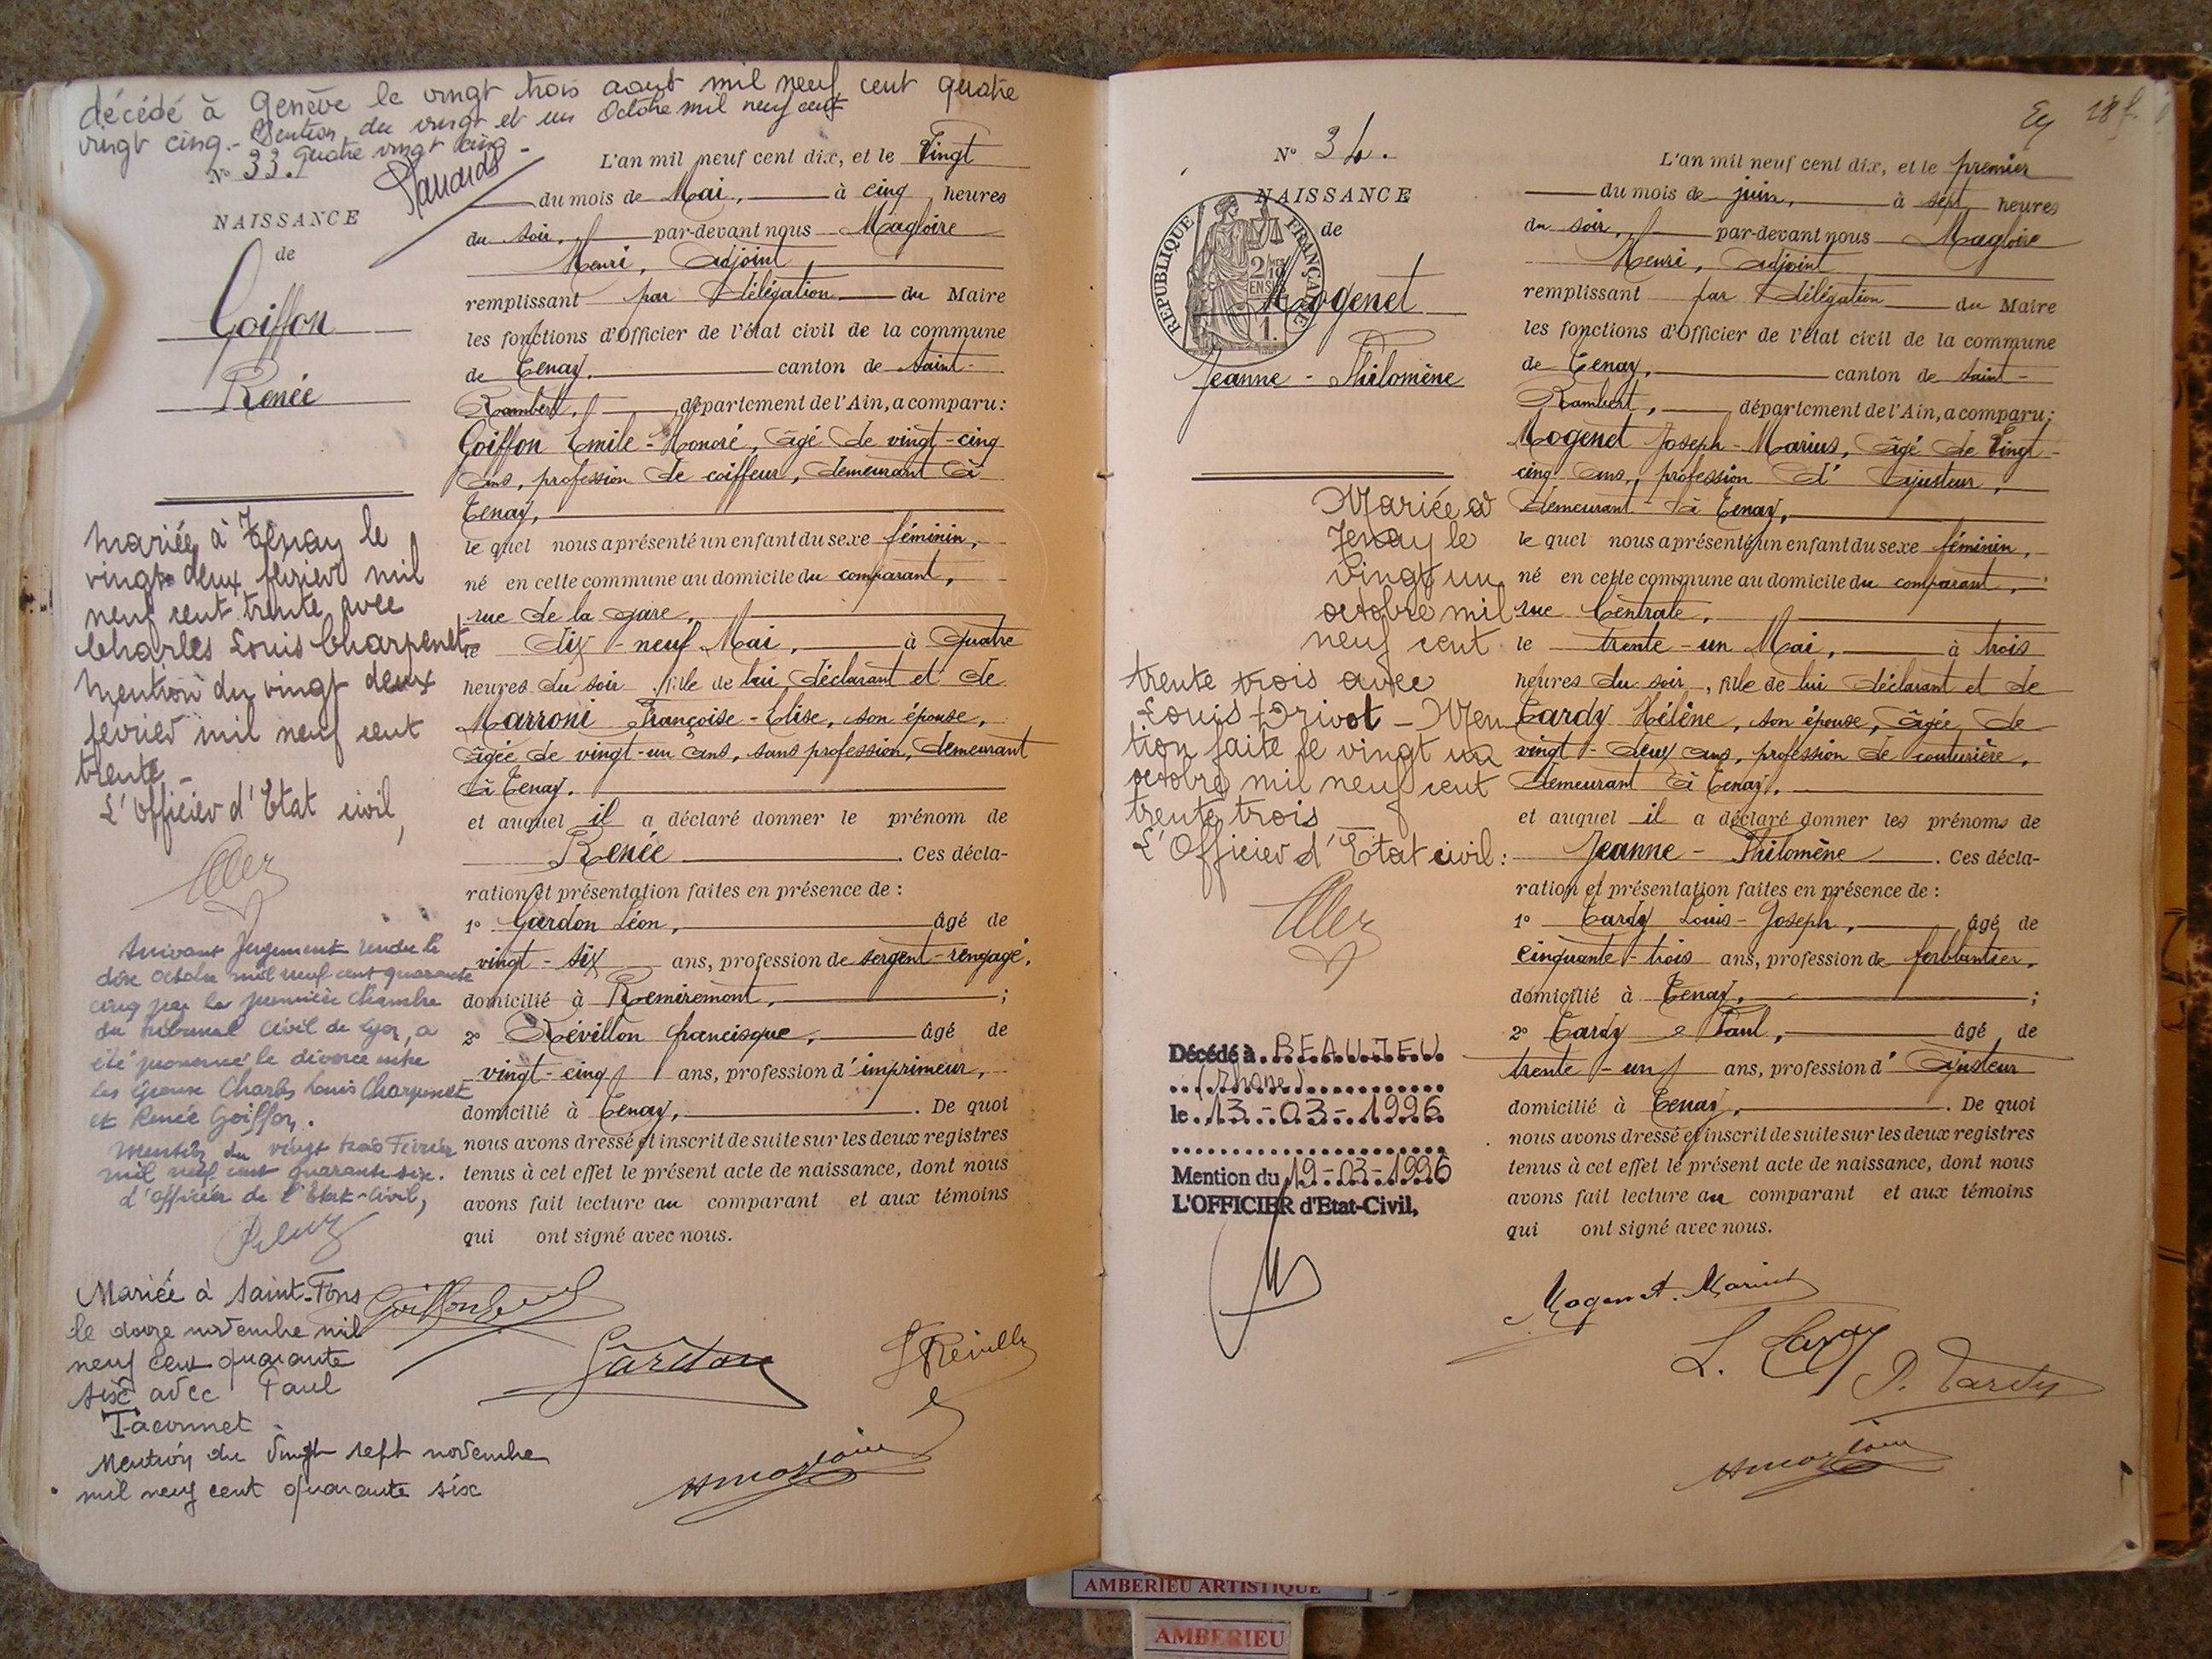 décédé à Genève le vingt trois aout mil neuf cent quatre
vingt cinq.- Mention du vingt et un Octobre mil neuf cent
quatre vingt cinq -
N° 33.
NAISSANCE
de
Goiffon
Renée
mariée à Tenay le
vingt deux février mil
neuf cent trente avec
Charles Louis Charpenet
Mention du vingt deux
février mil neuf cent
trente -
L'Officier d'Etat civil,
Suivant Jugement rendu le
dix Octobre mil neuf cent quarante
cinq par la première Chambre
du tribunal Civil de Lyon, a
été prononcé le divorce entre
les époux Charles Louis Charpenet
et Renée Goiffon.
Mention du vingt trois Février
mil neuf cent quarante six.
L'Officier de l'Etat-Civil,
Mariée à Saint-Fons
le douze novembre mil
neuf cent quarante
six avec Paul
Taconnet -
Mention du vingt sept novembre
mil neuf cent quarante six
L'an mil neuf cent dix, et le Vingt
du mois de Mai, à cinq heures
du soir, par-devant nous Magloire
Henri, Adjoint,
remplissant par Délégation du Maire
les fonctions d'Officier de l'état civil de la commune
de Tenay. canton de Saint-
Rambert, département de l'Ain, a comparu:
Goiffon Emile-Honoré, âgé de vingt-cinq
ans, profession de coiffeur, demeurant à
Tenay,
le quel nous a présenté un enfant du sexe féminin,
né en cette commune au domicile du comparant,
rue de la gare,
le dix-neuf Mai, à Quatre
heures du soir fille de lui déclarant et de
Marroni Françoise-Elise, son épouse,
âgée de vingt-un ans, sans profession, demeurant
à Tenay.
et auquel il a déclaré donner le prénom de
Renée. Ces décla-
ration et présentation faites en présence de :
1° Gardon Léon, âgé de
vingt-six ans, profession de sergent-rengagé,
domicilié à Remiremont, ;
2° Révillon francisque, âgé de
vingt-cinq ans, profession d'imprimeur,
domicilié à Tenay, . De quoi
nous avons dressé et inscrit de suite sur les deux registres
tenus à cet effet le présent acte de naissance, dont nous
avons fait lecture au comparant et aux témoins
qui ont signé avec nous.
Gardon
28 f.
N° 34.
NAISSANCE
de
RÉPUBLIQUE FRANÇAISE
Mogenet
Jeanne - Philomène
Mariée à
Tenay le
vingt un
octobre mil
neuf cent
trente trois avec
Louis Drivot - Men
tion faite le vingt un
octobre mil neuf cent
trente trois
L'Officier d'Etat civil :
Décédé à BEAUJEU
(Rhone)
le 13-03-1996
Mention du 19-03-1996
L'OFFICIER d'Etat-Civil,
L'an mil neuf cent dix, et le premier
du mois de juin, à sept heures
du soir, par-devant nous Magloire
Henri, adjoint
remplissant par Délégation du Maire
les fonctions d'Officier de l'état civil de la commune
de Tenay, canton de Saint-
Rambert, département de l'Ain, a comparu:
Mogenet Joseph-Marius, âgé de Vingt-
cinq ans, profession d'Ajusteur,
demeurant à Tenay,
le quel nous a présenté un enfant du sexe féminin,
né en cette commune au domicile du comparant,
rue Centrale,
le trente-un Mai, à trois
heures du soir, fille de lui déclarant et de
Tardy Hélène, son épouse, âgée de
vingt-deux ans, profession de couturière,
demeurant à Tenay,
et auquel il a déclaré donner les prénoms de
Jeanne - Philomène. Ces décla-
ration et présentation faites en présence de :
1° Tardy Louis-Joseph, âgé de
cinquante-trois ans, profession de ferblantier,
domicilié à Tenay, ;
2° Tardy Paul, âgé de
trente-un ans, profession d'Ajusteur
domicilié à Tenay, . De quoi
nous avons dressé et inscrit de suite sur les deux registres
tenus à cet effet le présent acte de naissance, dont nous
avons fait lecture au comparant et aux témoins
qui ont signé avec nous.
Mogenet. Marius
L. Tardy
P. Tardy
AMBERIEU ARTISTIQUE
AMBERIEU